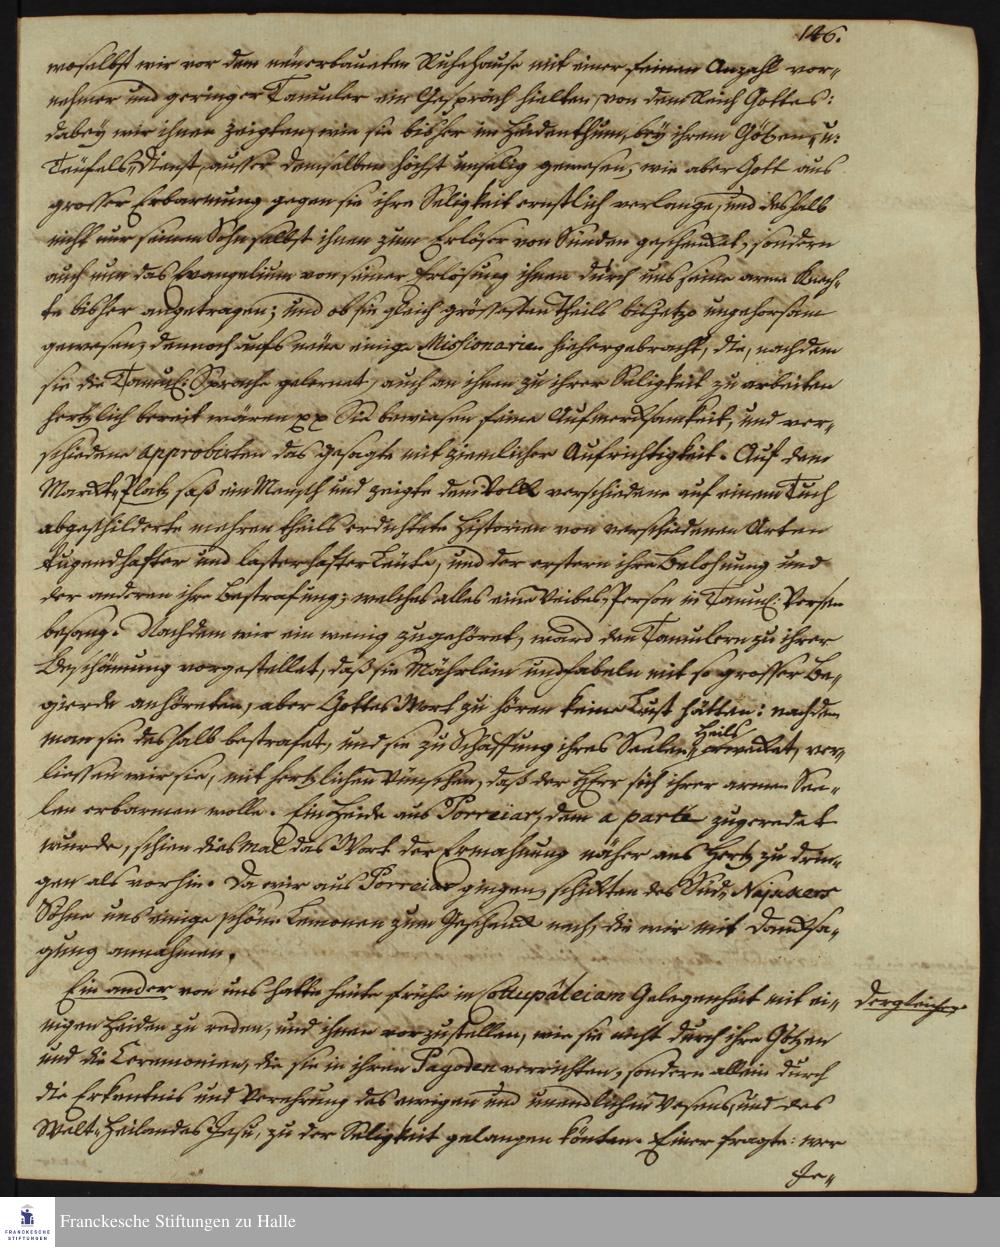 146.
woselbst wir vor dem neuerbaueten Ruhehause mit einer feinen Anzahl vor-
nehmer und geringer Tamuler ein Gespräch hielten, von dem Reich Gottes:
dabey wir ihnen zeigten, wie sie bisher im Heidenthum, bey ihrem Götzen- u:
Teufels-Dienst, ausser demselben höchst unselig gewesen, wie aber Gott aus
grosser Erbarmung gegen sie ihre Seligkeit ernstlich verlange, und deshalb
nicht nur seinen Sohn selbst ihnen zum Erlöser von Sünden geschenckt, sondern
auch nun das Evangelium von seiner Erlösung ihnen durch uns seine arme Knech-
te bisher angetragen; und ob sie gleich grössesten Theils bis jetzo ungehorsam
gewesen, dennoch aufs neue einige Missionarien hiehergebracht, die, nachdem
sie die Tamul: Sprache gelernet, auch an ihnen zu ihrer Seligkeit zu arbeiten
hertzlich bereit wären pp Sie bewiesen feine Aufmercksamkeit, und ver-
schiedene approbirten das gesagte mit ziemlicher Aufrichtigkeit. Auf dem
Marckt-Platz saß ein Mensch und zeigte dem Volck verschiedene auf einem Tuch
abgeschilderte mehren theils erdichtete Historien von verschiedenen Arten
tugendhafter und lasterhafter Leute, und der erstern ihre Belohnung und
der anderen ihre Bestrafung; welches alles eine Weibes-Person in Tamul: Versen
besang. Nachdem wir ein wenig zugehöret, ward den Tamulern zu ihrer
Beschämung vorgestellet, daß sie Mährlein und Fabeln mit so grosser Be-
gierde anhöreten, aber Gottes Wort zu hören keine Lust hätten: nachdem
man sie deshalb bestrafet, und sie zu Schaffung ihres Seelen-Heils erwecket, ver-
liessen wir sie, mit hertzlichen Wünschen, daß der HErr sich ihrer armen See-
len erbarmen wolle. Ein Heide aus Porreiar, dem a parte zugeredet
wurde, schien dies Mal das Wort der Ermahnung näher ans Hertz zu drin-
gen als vorhin. Da wir aus Porreiar gingen, schickten des Sud-Najakers
Söhne uns einige schöne Lemonen zum Geschenck nach, die wir mit Dancksa-
gung annahmen.
Ein ander von uns hatte heute frühe in Cottupáleiam Gelegenheit mit ei-
dergleichen
nigen Heiden zu reden, und ihnen vorzustellen, wie sie nicht durch ihre Götzen
und die Ceremonien, die sie in ihren Pagoden verrichten, sondern allein durch
die Erkentnis und Verehrung des ewigen und unendlichen Wesens, und des
Welt-Heilandes Jesu, zu der Seligkeit gelangen könten. Einer fragte: wer
Je-
Franckesche Stiftungen zu Halle
FRANCKESCHE
STIFTUNGEN